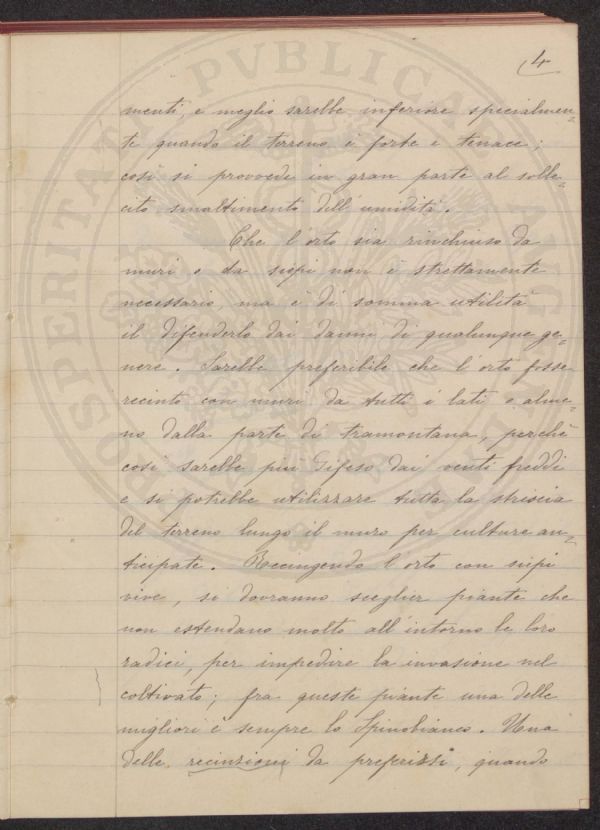 4
menti, e meglio sarebbe inferiore specialmen-
te quando il terreno è forte e tenace;
così si provvede in gran parte al solle-
cito smaltimento dell'umidità.
Che l'orto sia rinchiuso da
muri o da siepi non è strettamente
necessario, ma è di somma utilità
il difenderlo dai danni di qualunque ge-
nere. Sarebbe preferibile che l'orto fosse
recinto con muri da tutti i lati o alme-
no dalla parte di tramontana, perchè
così sarebbe più difeso dai venti freddi
e si potrebbe utilizzare tutta la striscia
del terreno lungo il muro per culture an-
ticipate. Recingendo l'orto con siepi
vive, si dovranno sceglier piante che
non estendano molto all'intorno le loro
radici, per impedire la invasione nel
coltivato; fra queste piante una delle
migliori è sempre lo Spinobianco. Una
delle recinzioni da preferirsi, quando
PROSPERITATI PVBLICAE